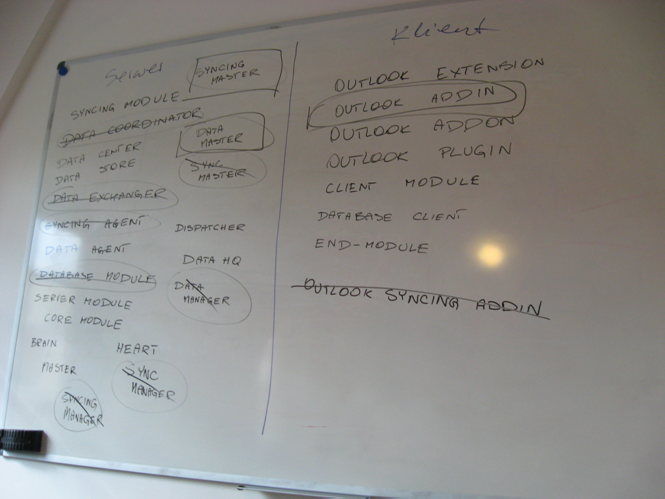 Serwer
SYNCING
MASTER
SYNCING MODULE
DATA COORDINATOR
DATA CENTER
DATA STORE
DATA
MASTER
SYNC
MASTER
DATA EXCHANGER
SYNCING AGENT
DISPATCHER
DATA AGENT
DATA HQ
DATABASE MODULE
DATA
MANAGER
SERVER MODULE
CORE MODULE
BRAIN
HEART
MASTER
SYNC
MANAGER
SYNCING
MANAGER
Klient
OUTLOOK EXTENSION
OUTLOOK ADDIN
OUTLOOK ADDON
OUTLOOK PLUGIN
CLIENT MODULE
DATABASE CLIENT
END-MODULE
OUTLOOK SYNCING ADDIN